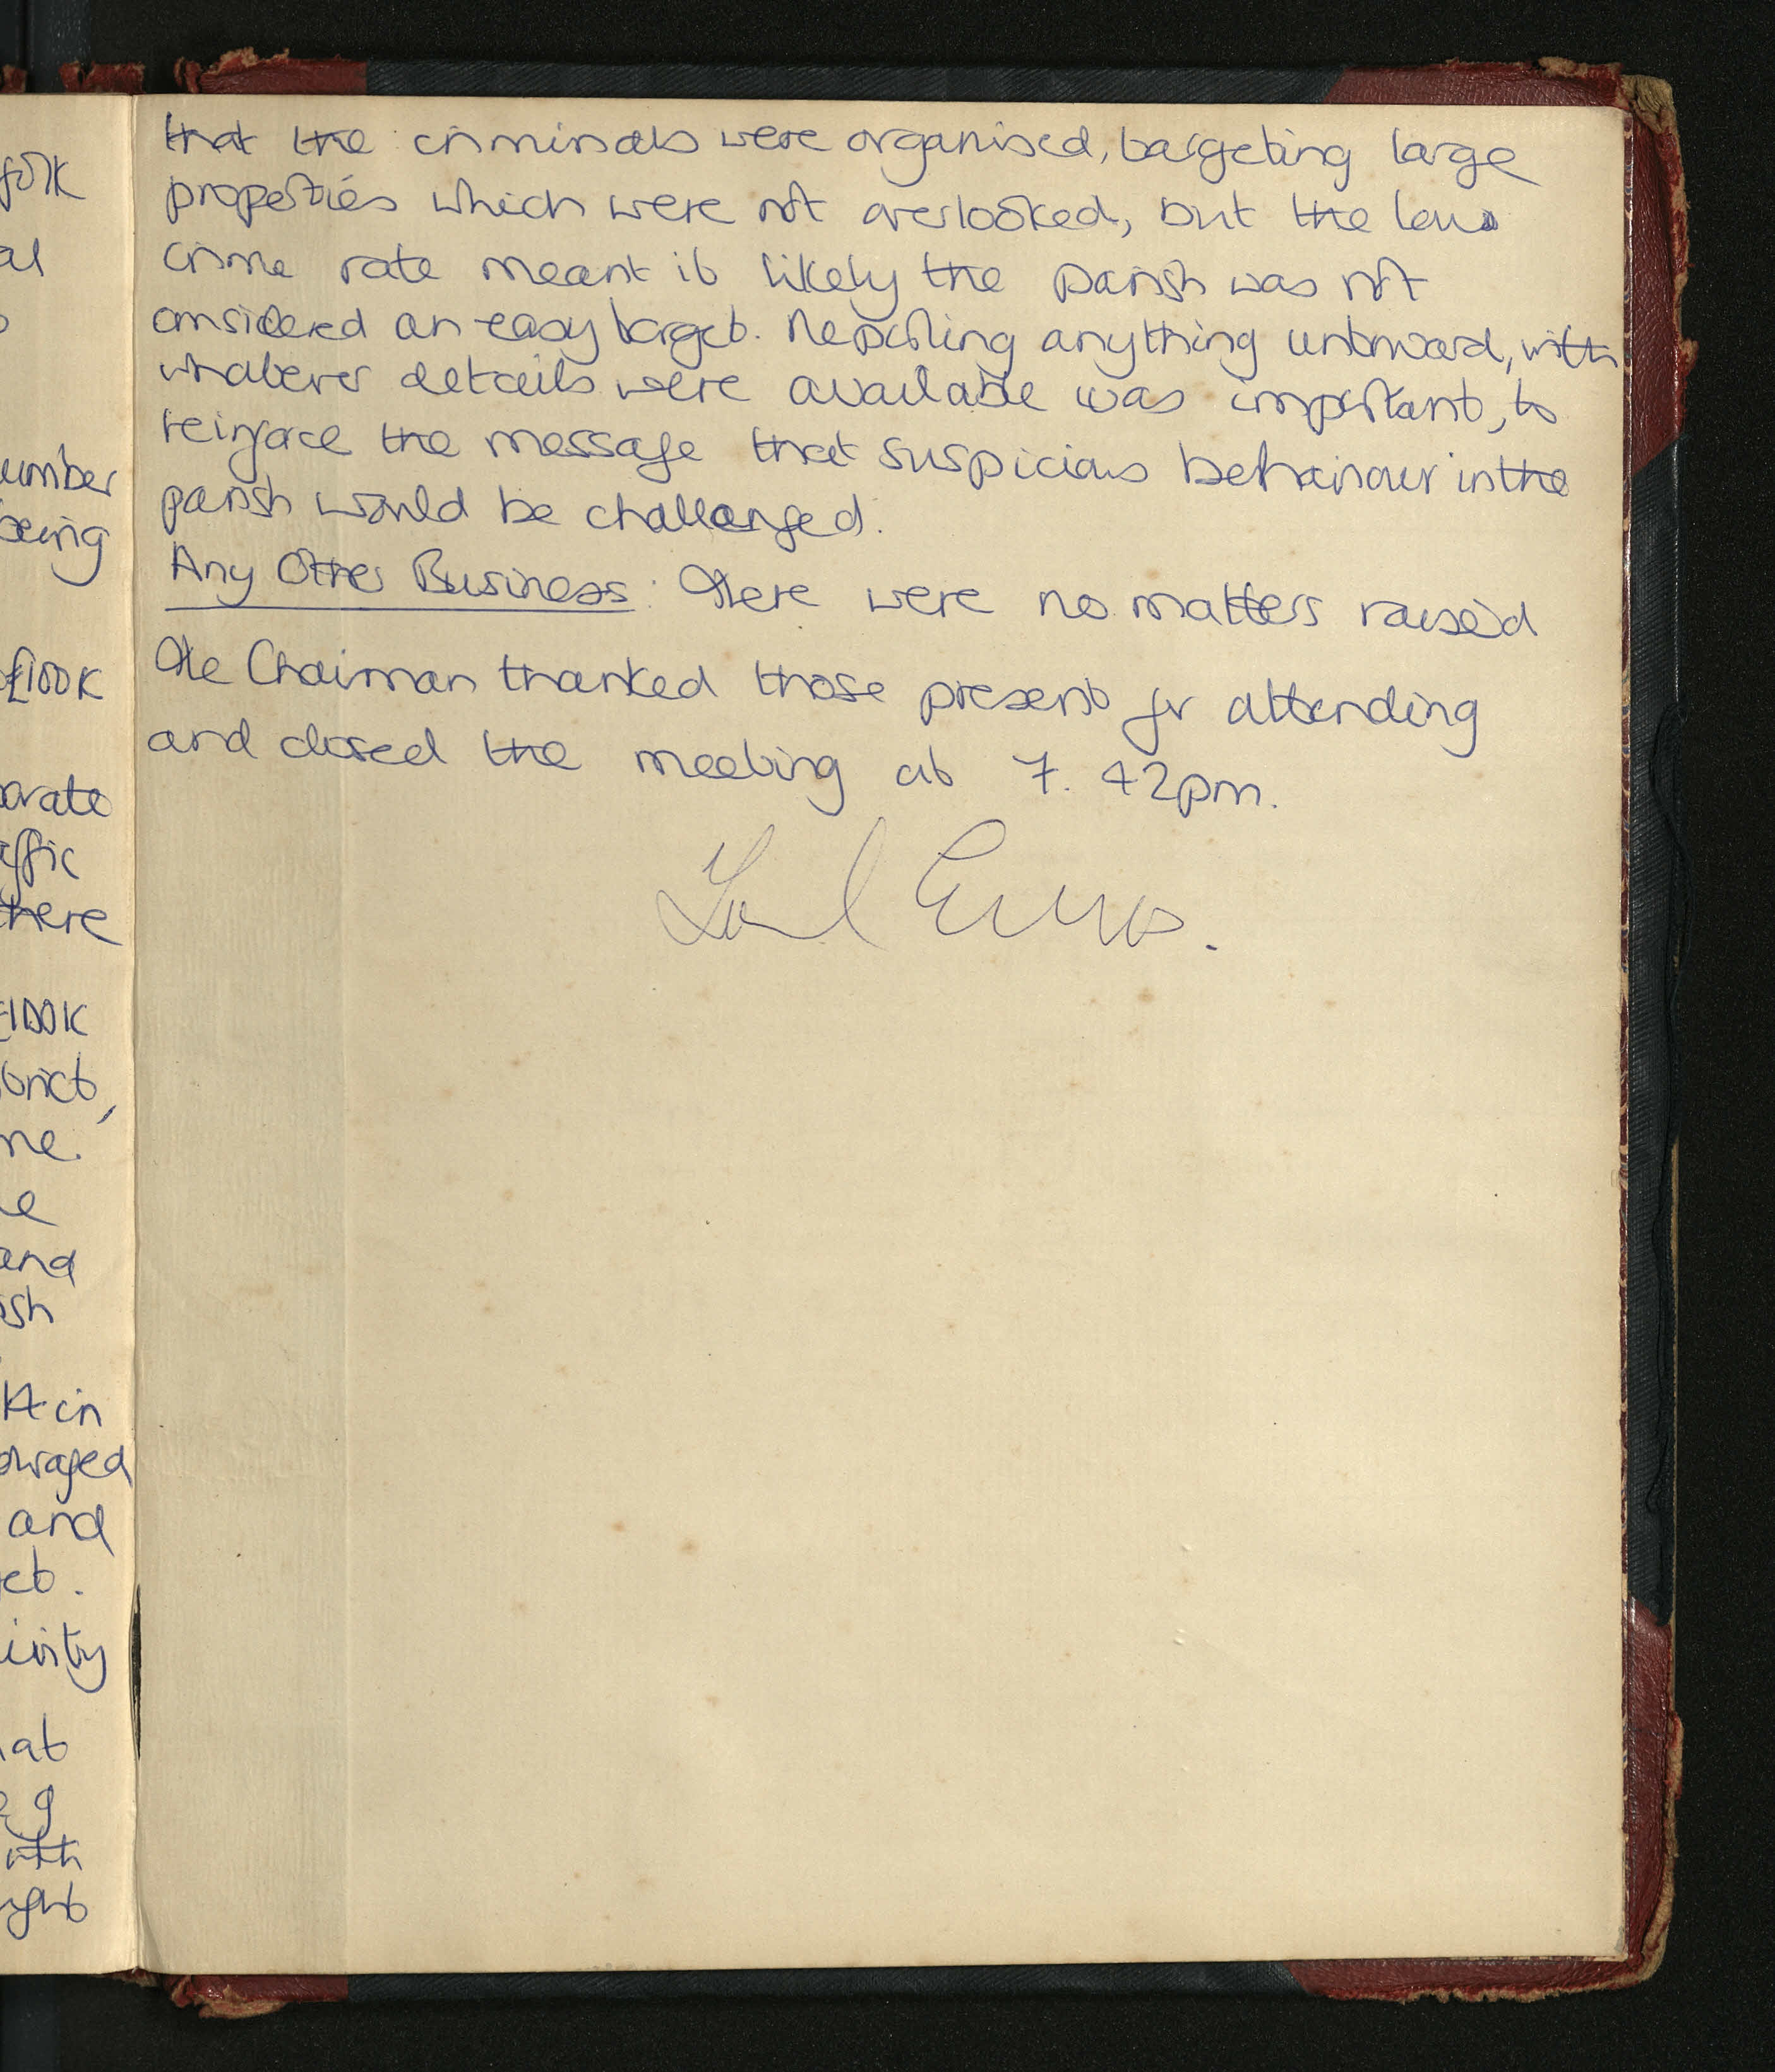 folk
al
umber
being
£100K
parate
affic
there
£100K
trict,
me.
and
ish
in
ouraged
and
et.
ivity
hat
eg
with
ight
that the criminals were organised, targeting large
properties which were not overlooked, but the low
crime rate meant it likely the parish was not
considered an easy target. Reporting anything untoward, with
whatever details were available was important, to
reinforce the message that suspicious behaviour in the
parish would be challenged.
Any Other Business: There were no matters raised
The Chairman thanked those present for attending
and closed the meeting at 7.42pm.